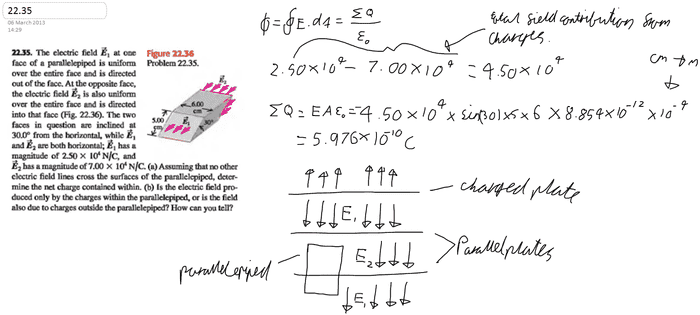 22.35
08 March 2013
14:29
22.35. The electric field E₁ at one
face of a parallelepiped is uniform
over the entire face and is directed
out of the face. At the opposite face,
the electric field E₂ is also uniform
over the entire face and is directed
into that face (Fig. 22.36). The two
faces in question are inclined at
30.0° from the horizontal, while E₁
and E₂ are both horizontal; E₁ has a
magnitude of 2.50 × 10⁴ N/C, and
E₂ has a magnitude of 7.00 × 10⁴ N/C. (a) Assuming that no other
electric field lines cross the surfaces of the parallelepiped, deter-
mine the net charge contained within. (b) Is the electric field pro-
duced only by the charges within the parallelepiped, or is the field
also due to charges outside the parallelepiped? How can you tell?
Figure 22.36
Problem 22.35.
E₂
6.00
cm
5.00
cm
E₁
30°
ϕ = ∮E.dA = ΣQ / ε₀
field contribution from
charges.
2.50×10⁴ - 7.00×10⁴ = 4.50×10⁴
cm → m
ΣQ = EAε₀ = -4.50×10⁴ × sin(30)×5×6 × 8.854×10⁻¹² ×10⁻⁴
= 5.976×10⁻¹⁰ C
charged plate
E₁
E₂
Parallel plates
parallelepiped
E₁